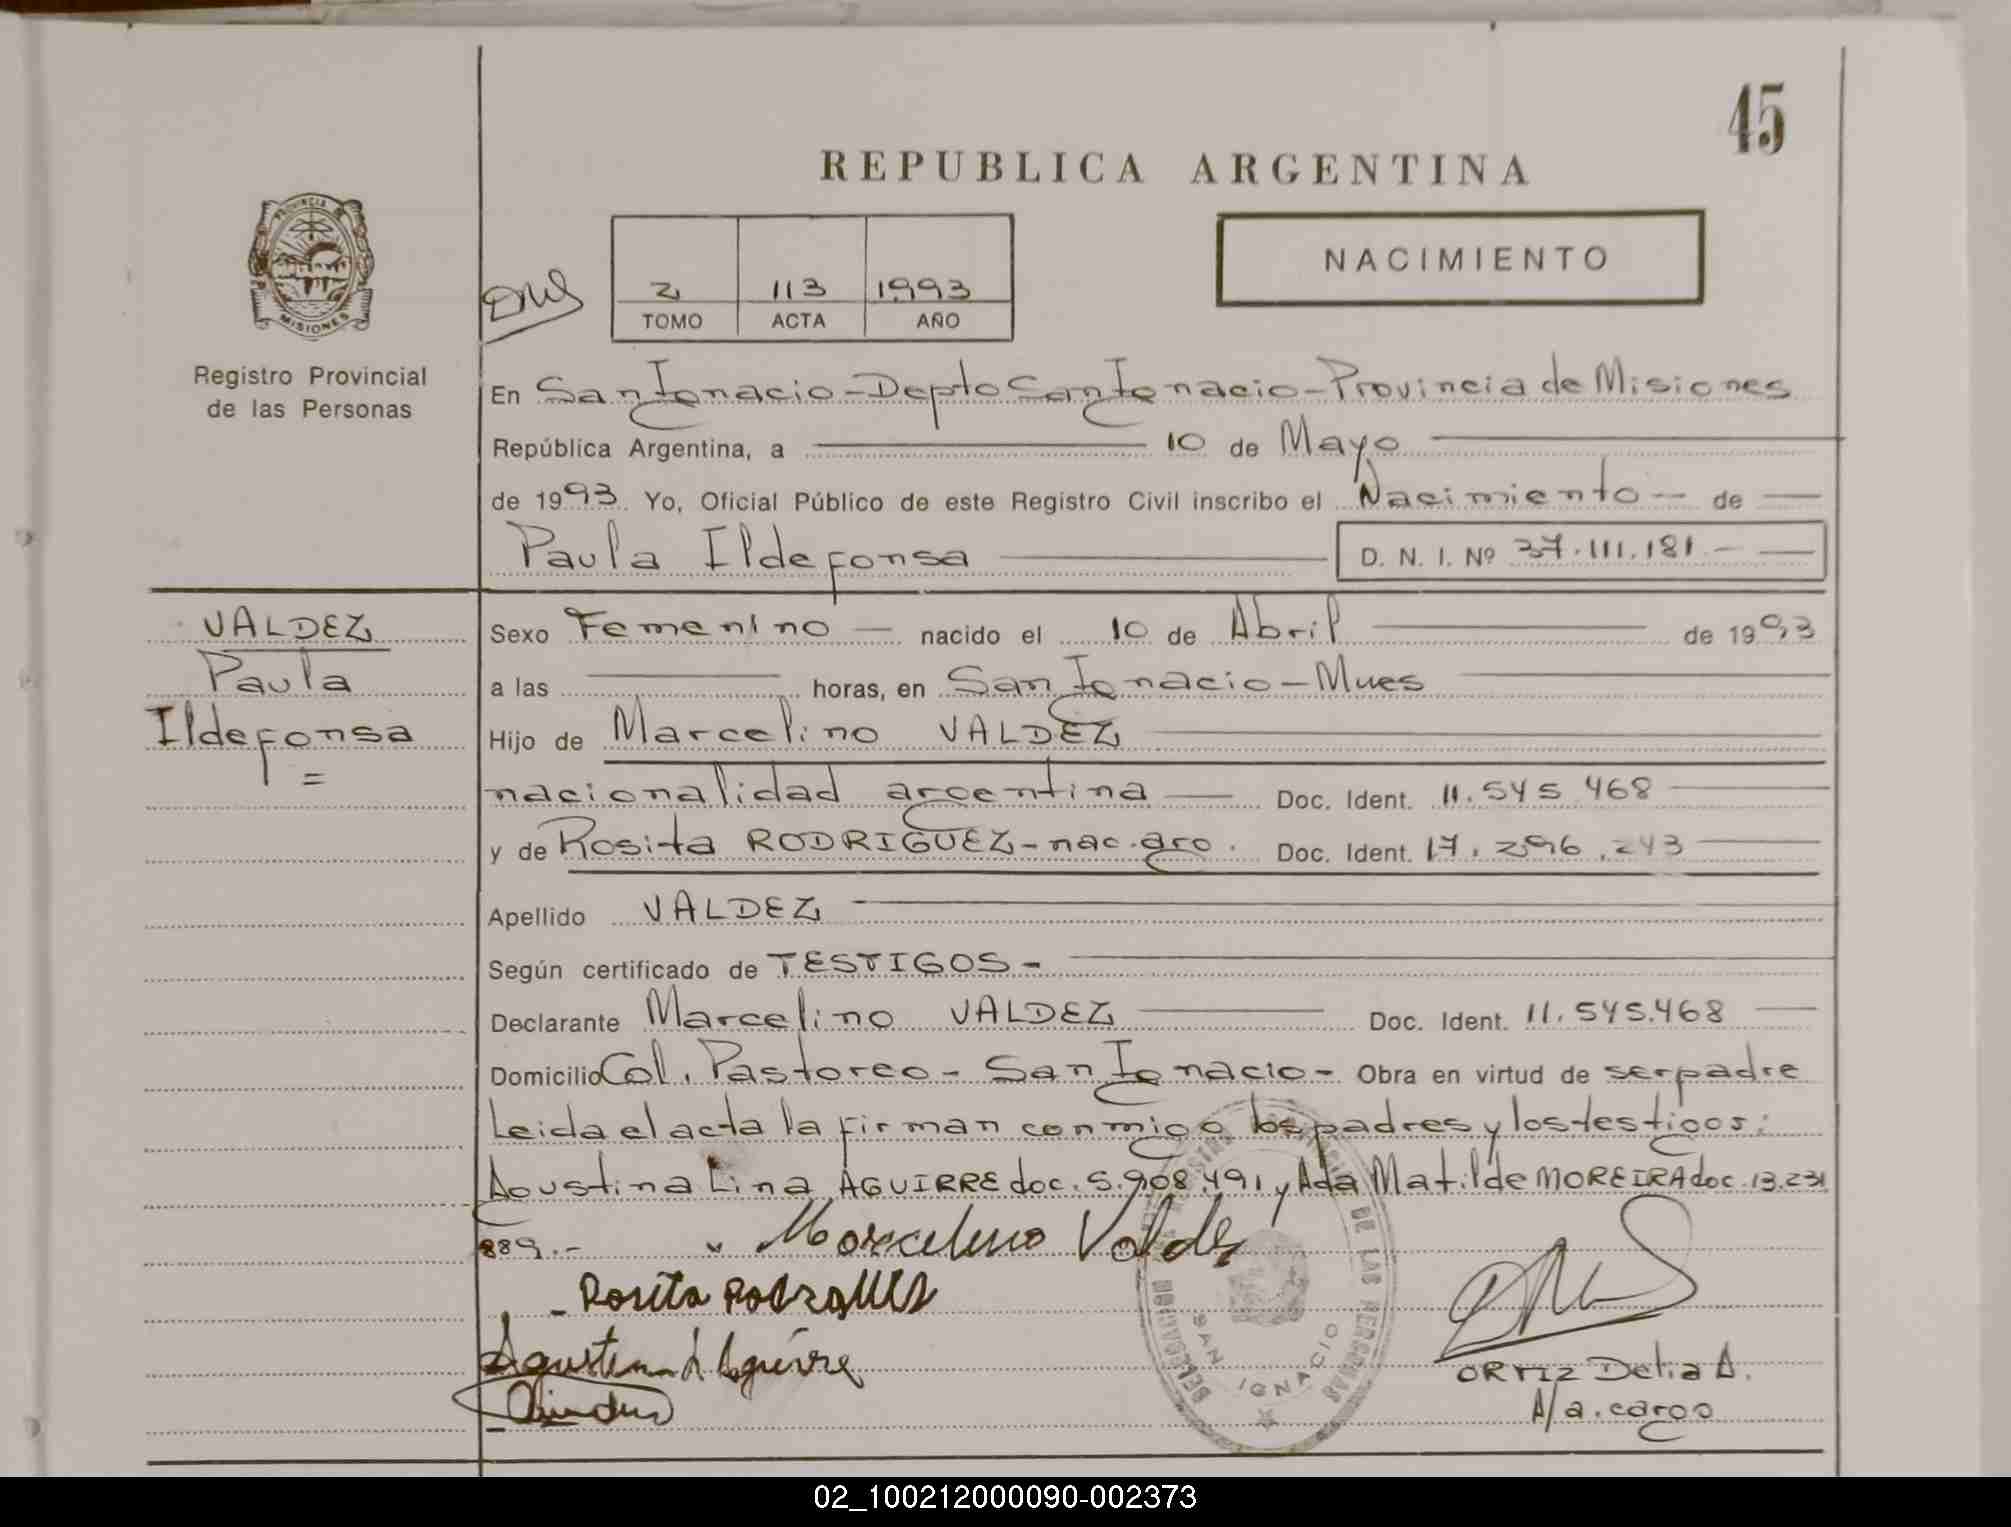 45
REPUBLICA ARGENTINA
PROVINCIA DE
MISIONES
Registro Provincial
de las Personas
2 113 1993
TOMO ACTA AÑO
NACIMIENTO
En San Ignacio - Depto San Ignacio - Provincia de Misiones
República Argentina, a 10 de Mayo
de 1993 Yo, Oficial Público de este Registro Civil inscribo el Nacimiento - de
Paula Ildefonsa D. N. I. Nº 37.111.181.-
VALDEZ
Paula
Ildefonsa
=
Sexo Femenino - nacido el 10 de Abril de 1993
a las horas, en San Ignacio - Mnes
Hijo de Marcelino VALDEZ
nacionalidad argentina Doc. Ident. 11.545.468
y de Rosita RODRIGUEZ - nac. arg. Doc. Ident. 17.296.243
Apellido VALDEZ
Según certificado de TESTIGOS -
Declarante Marcelino VALDEZ Doc. Ident. 11.545.468
Domicilio Col. Pastoreo - San Ignacio - Obra en virtud de ser padre
Leida el acta la firman conmigo los padres y los testigos:
Agustina Lina AGUIRRE doc. 5.908.491 y Ada Matilde MOREIRA doc. 13.231
889.-
Marcelino Valdez
- Rosita Rodrigues
Agustina L Aguirre
DELEGACION DE LAS PERSONAS
SAN IGNACIO
ORTIZ Delia A.
A/a. cargo
02_100212000090-002373